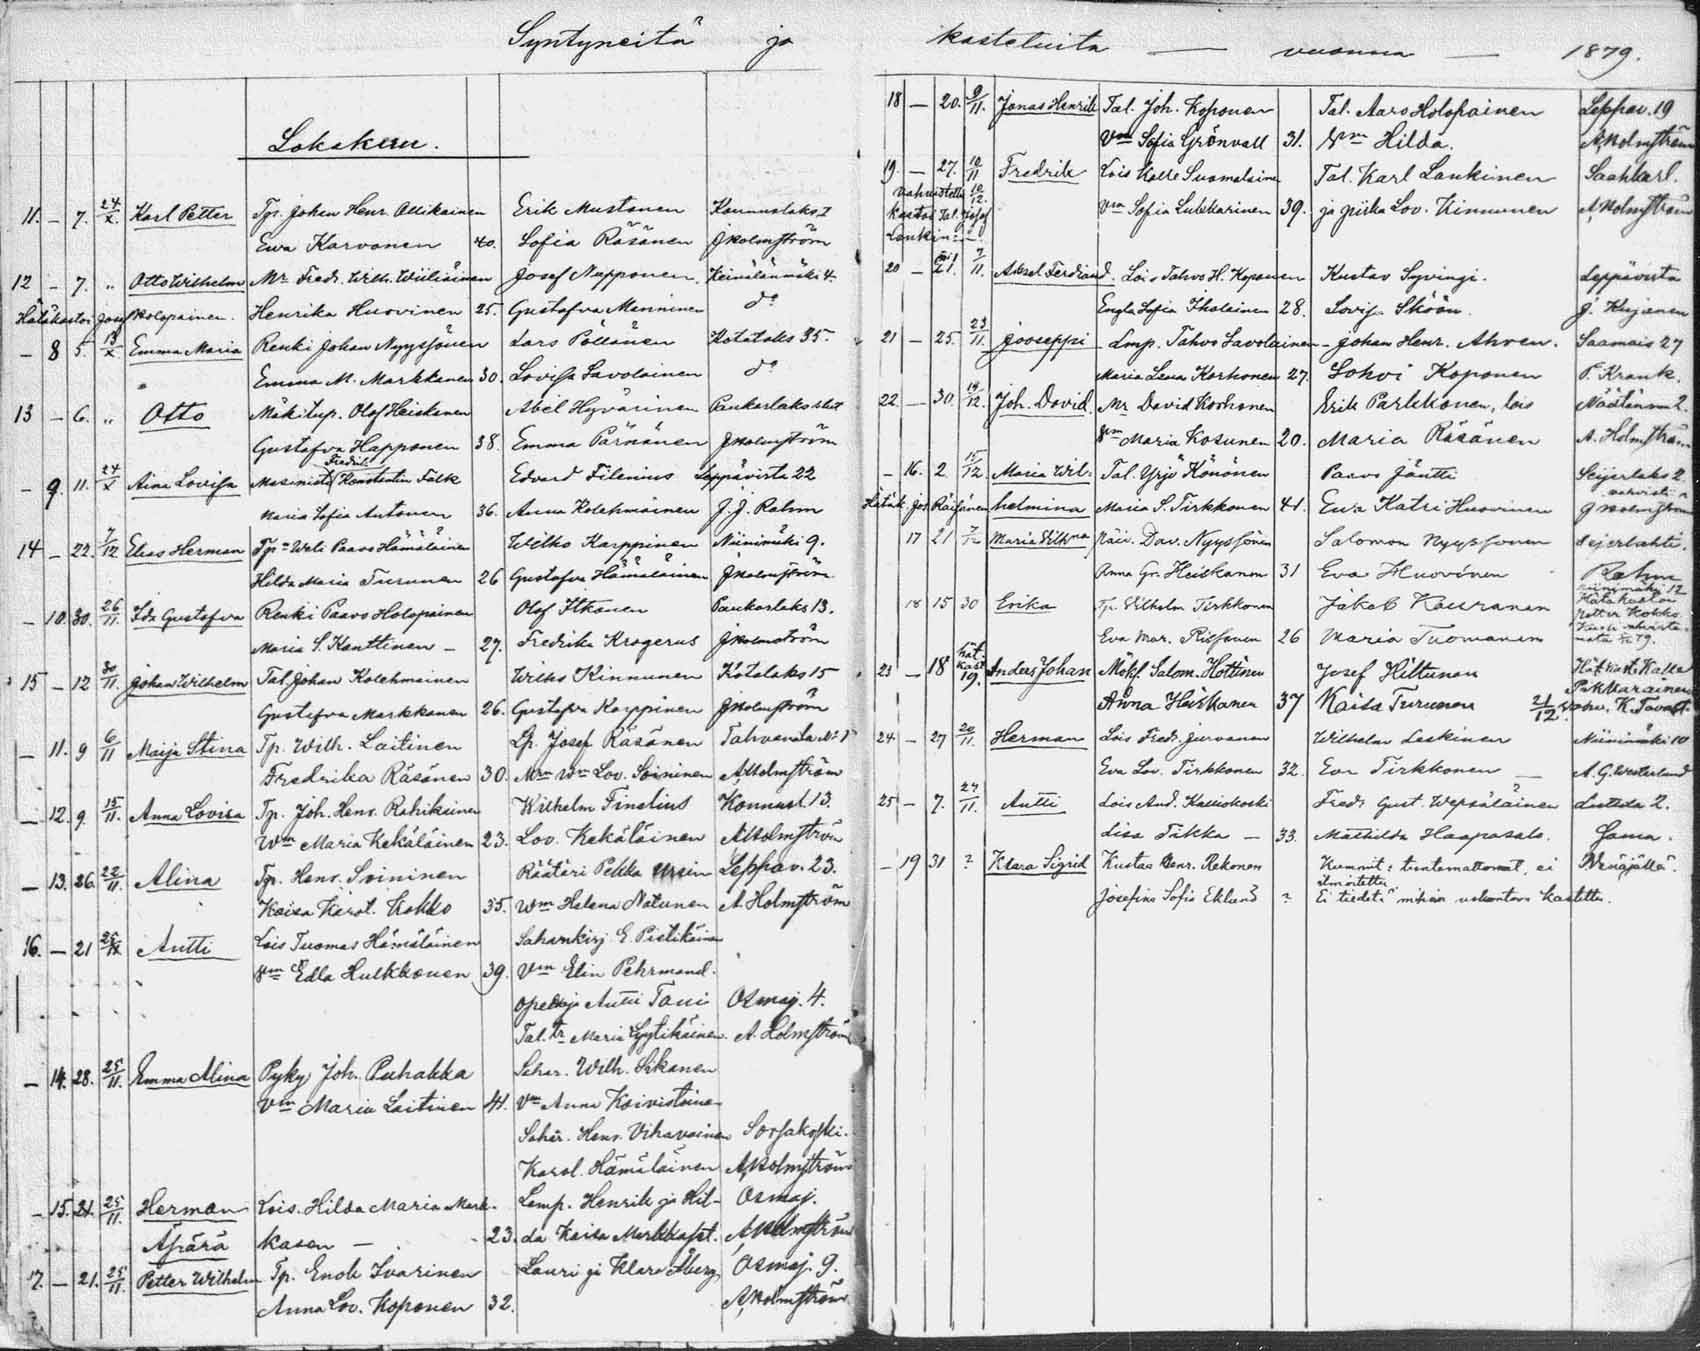 Syntyneitä ja kastetuita — vuonna — 1879.
Lokakuu.
11. – 7. 24/X. Karl Petter Tp. Johan Henr. Ollikainen Erik Mustonen Konnuslaks I
Ewa Karvonen 40. Sofia Räsänen J Holmström
12 – 7. „ Otto Wilhelm Mr Fredr. Wilh. Wiiliäinen Josef Nupponen. Keinälänmäki 4.
Hätäkastoi Josef Holopainen. Henrika Huovinen 25. Gustafva Manninen do
– 8 5. 13/X Emma Maria Renki Johan Nyyssönen Lars Pöllänen Kotalaks 35.
Emma M. Markkanen 30. Lovisa Savolainen do
13 – 6. „ Otto Mäkitup. Olof Heiskanen Abel Hyvärinen Paukarlaks
Gustafva Happonen 38. Emma Pärnänen J Holmström
– 9. 11. 24/X Aina Lovisa Masinisti Fredrik Konstantin Fålk Edvard Filenius Leppävirta 22
Maria Sofia Antonen 36. Anna Kolehmainen J. J. Rahm
14 – 22. 7/12 Elias Herman Tp. Paavo Hämäläinen Wilko Karppinen Niinimäki 9.
Hilda Maria Turunen 26 Gustafva Hämäläinen J Holmström
– 10. 30. 26/11 Ida Gustafva Renki Paavo Holopainen Olof Itkonen Paukarlaks 13.
Maria S. Kanttinen – 27. Fredrika Krogerus J Holmström
15 – 12 30/11. Johan Wilhelm Tal. Johan Kolehmainen Wilho Kinnunen Kotalaks 15
Gustafva Markkanen 26. Gustafva Karppinen J Holmström
– 11. 9 6/11 Maija Stina Tp. Wilh. Laitinen Lp. Josef Räsänen Tahvenla
Fredrika Räsänen 30. Lov. Soininen A Holmström
– 12. 9. 15/11. Anna Lovisa Tp. Joh. Henr. Rahikainen Wilhelm Finelius Konnusl. 13.
Wm Maria Kekäläinen 23. Lov. Kekäläinen A Holmström
– 13. 26. 22/11. Alina Tp. Henr. Soininen Räätäri Pekka Ursin Leppäv. 23.
Kaisa Karol. Kokko 35. Wm Helena Nätunen A Holmström
16. – 21 Antti Lois Tuomas Hämäläinen Sahankirj. E. Pistikäinen
Vm Edla Hulkkonen 39. Vm Elin Pehrmand.
Antti Tani Osmaj. 4.
Tal. tr Maria Lyytikäinen A. Holmström
– 14. 28. 25/11. Emma Alina Pyky. Joh. Puhakka Sahar. Wilh. Sikanen
Vm Maria Laitinen 41. Vm Anna Koivistoinen
Sahar. Henr. Vihavainen Sorsakoski.
Karol. Hämäläinen A Holmström
– 15. 21. 25/11. Herman Lois. Hilda Maria Mark- Lamp. Henrik ja Hil- Osmaj.
Äpärä kasen – 23. da Kaisa A Holmström
17. – 21. 25/11. Petter Wilhelm Tp. Enok Ivarinen Lauri ja Klara Åberg Osmaj. 9.
Anna Lov. Koponen 32. A Holmström
18 – 20. 9/11. Jonas Henrik Tal. Joh. Koponen Tal. Aaro Holopainen Leppäv. 19
Vm Sofia Grönvall 31. Vm Hilda. A Holmström
19. – 27. 10/11 Fredrik Lois Kalle Suomalainen Tal. Karl Laukinen Saahkarl.
vahvistettu 10/12. Kastoi tal. Josef Laukinen. Vm Sofia Lukkarinen 39. ja piika Lov. Kinnunen A Holmström
20 – 21. 7/11. Aksel Ferdinand. Lois Tahvo H. Koponen Kustav Syvingi. Leppävirta
Engla Sofia Iholainen 28. Lovisa Sköön. J. Kinjanen
21 – 25. 23/11. Jooseppi Lmp. Tahvo Savolainen – Johan Henr. Ahven. Saamais 27
Maria Lena Korhonen 27. Sohvi Koponen P. Krank.
22 – 30. 14/12. Joh. David. Mr David Korhonen Erik Parkkonen, lois Näätänm 2.
Vm Maria Kosunen 20. Maria Räsänen A. Holmström
– 16. 2 15/12. Maria Wil- Tal. Yrjö Könönen Paavo Jäntti Seijerlaks 2.
Hätäk. Jos. Räisänen helmina Maria S. Tirkkonen 41. Ewa Katri Huovinen J Holmström
17 21 Maria Vilhma Päiv. Dav. Nyyssönen Salomon Nyyssonen Sejerlahti.
Anna Gr. Heiskanen 31 Eva Huovinen Rahm
18 15 30 Erika Tp. Vilhelm Tirkkonen Jakob Kauranen Niinimäki 12 Hätäkastoi Petter Kokko
Eva Mar. Rissanen 26 Maria Tuomanen
23 – 18 Hät. kast. 19. Anders Johan Mökf. Salom. Hottinen Josef Hiltunen Hät. kast. Kalle
Anna Heiskanen 37 Kaisa Turunen 21/12 vahv. K. Tavast.
24 – 27 20/11. Herman Lois Fredr. Jurvanen Wilhelm Leskinen Niinimäki 10
Eva Lov. Tirkkonen 32. Eva Tirkkonen – A. G. Westerlund
25 – 7. 27/11. Antti Lois And. Kalliokoski Fredr. Gust. Wepsäläinen Luttila 2.
Lisa Tikka – 33. Mathilda Haapasalo. Sama.
– 19 31 ? Klara Sigrid Kustaa Henr. Rekonen Kummit: tuntemattomat, ei ilmoitettu Wenäjällä.
Josefina Sofia Eklund ? Ei tiedetä mihin uskontoon kastettu.